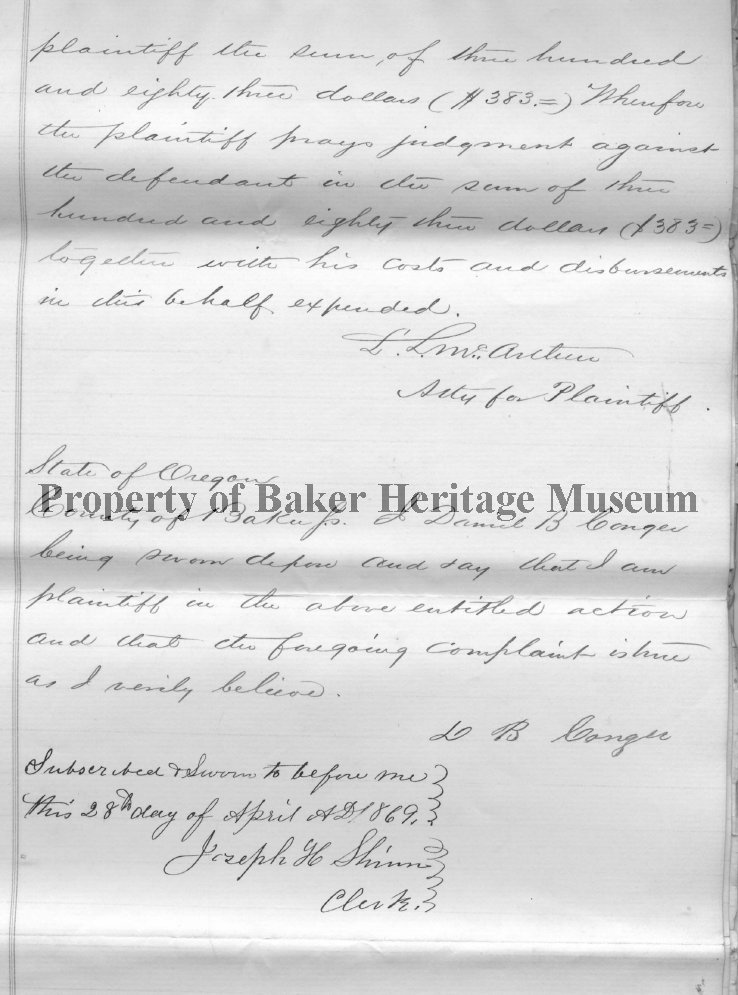 plaintiff the sum of three hundred
and eighty three dollars ($383.=) Wherefore
the plaintiff prays judgment against
the defendant in the sum of three
hundred and eighty three dollars ($383=)
together with his costs and disbursements
in this behalf expended.
L. L. McArthur
Atty for Plaintiff.
State of Oregon
Property of Baker Heritage Museum
County of Baker ss. I Daniel B Conger
being sworn depose and say that I am
plaintiff in the above entitled action
and that the foregoing complaint is true
as I verily believe.
D B Conger
Subscribed & Sworn to before me
this 28th day of April AD 1869.
Joseph H Shinn
Clerk.